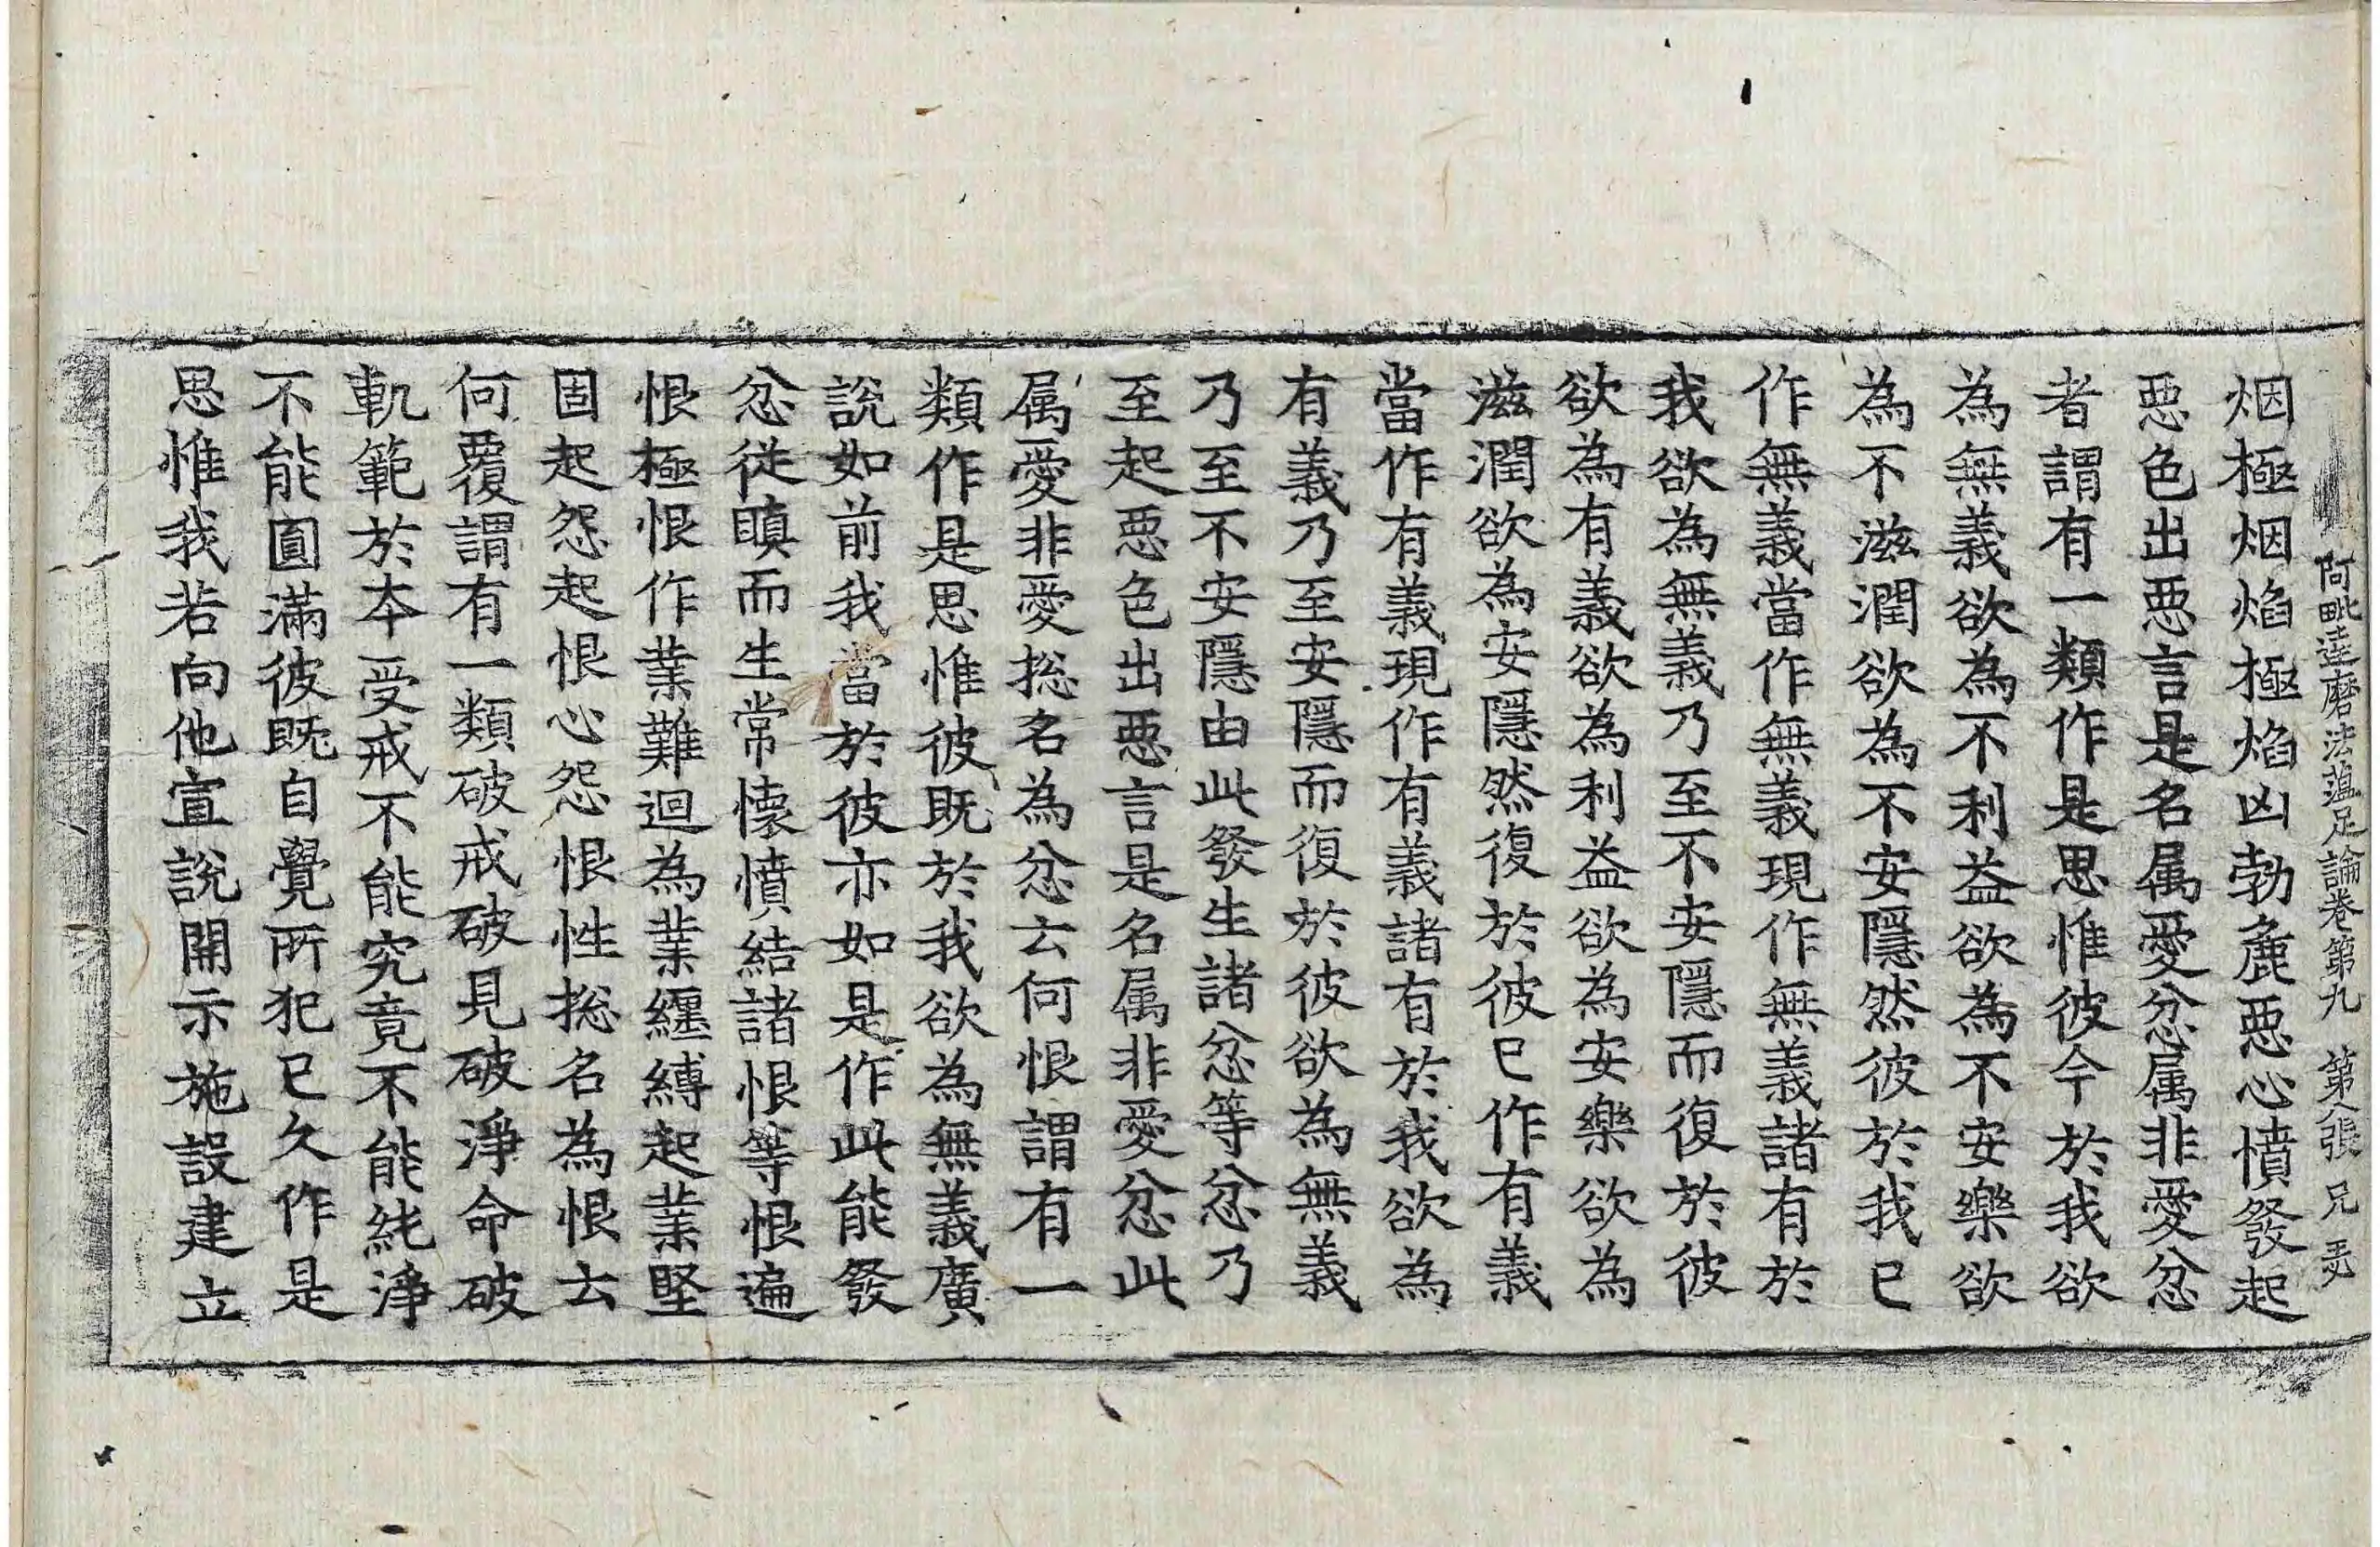 阿毗達磨法蘊足論卷第九 第八張 兄
烟極烟焰極焰凶勃麁惡心憤發起
惡色出惡言是名属愛忿属非愛忿
者謂有一類作是思惟彼今於我欲
為無義欲為不利益欲為不安樂欲
為不滋潤欲為不安隱然彼於我已
作無義當作無義現作無義諸有於
我欲為無義乃至不安隱而復於彼
欲為有義欲為利益欲為安樂欲為
滋潤欲為安隱然復於彼已作有義
當作有義現作有義諸有於我欲為
有義乃至安隱而復於彼欲為無義
乃至不安隱由此發生諸忿等忿乃
至起惡色出惡言是名属非愛忿此
属愛非愛捴名為忿云何恨謂有一
類作是思惟彼既於我欲為無義廣
說如前我當於彼亦如是作此能發
忿從瞋而生常懐憤結諸恨等恨遍
恨極恨作業難迴為業纏縛起業堅
固起怨起恨心怨恨性捴名為恨云
何覆謂有一類破戒破見破淨命破
軌範於夲受戒不能究竟不能純淨
不能圓滿彼既自覺所犯已久作是
思惟我若向他宣說開示施設建立